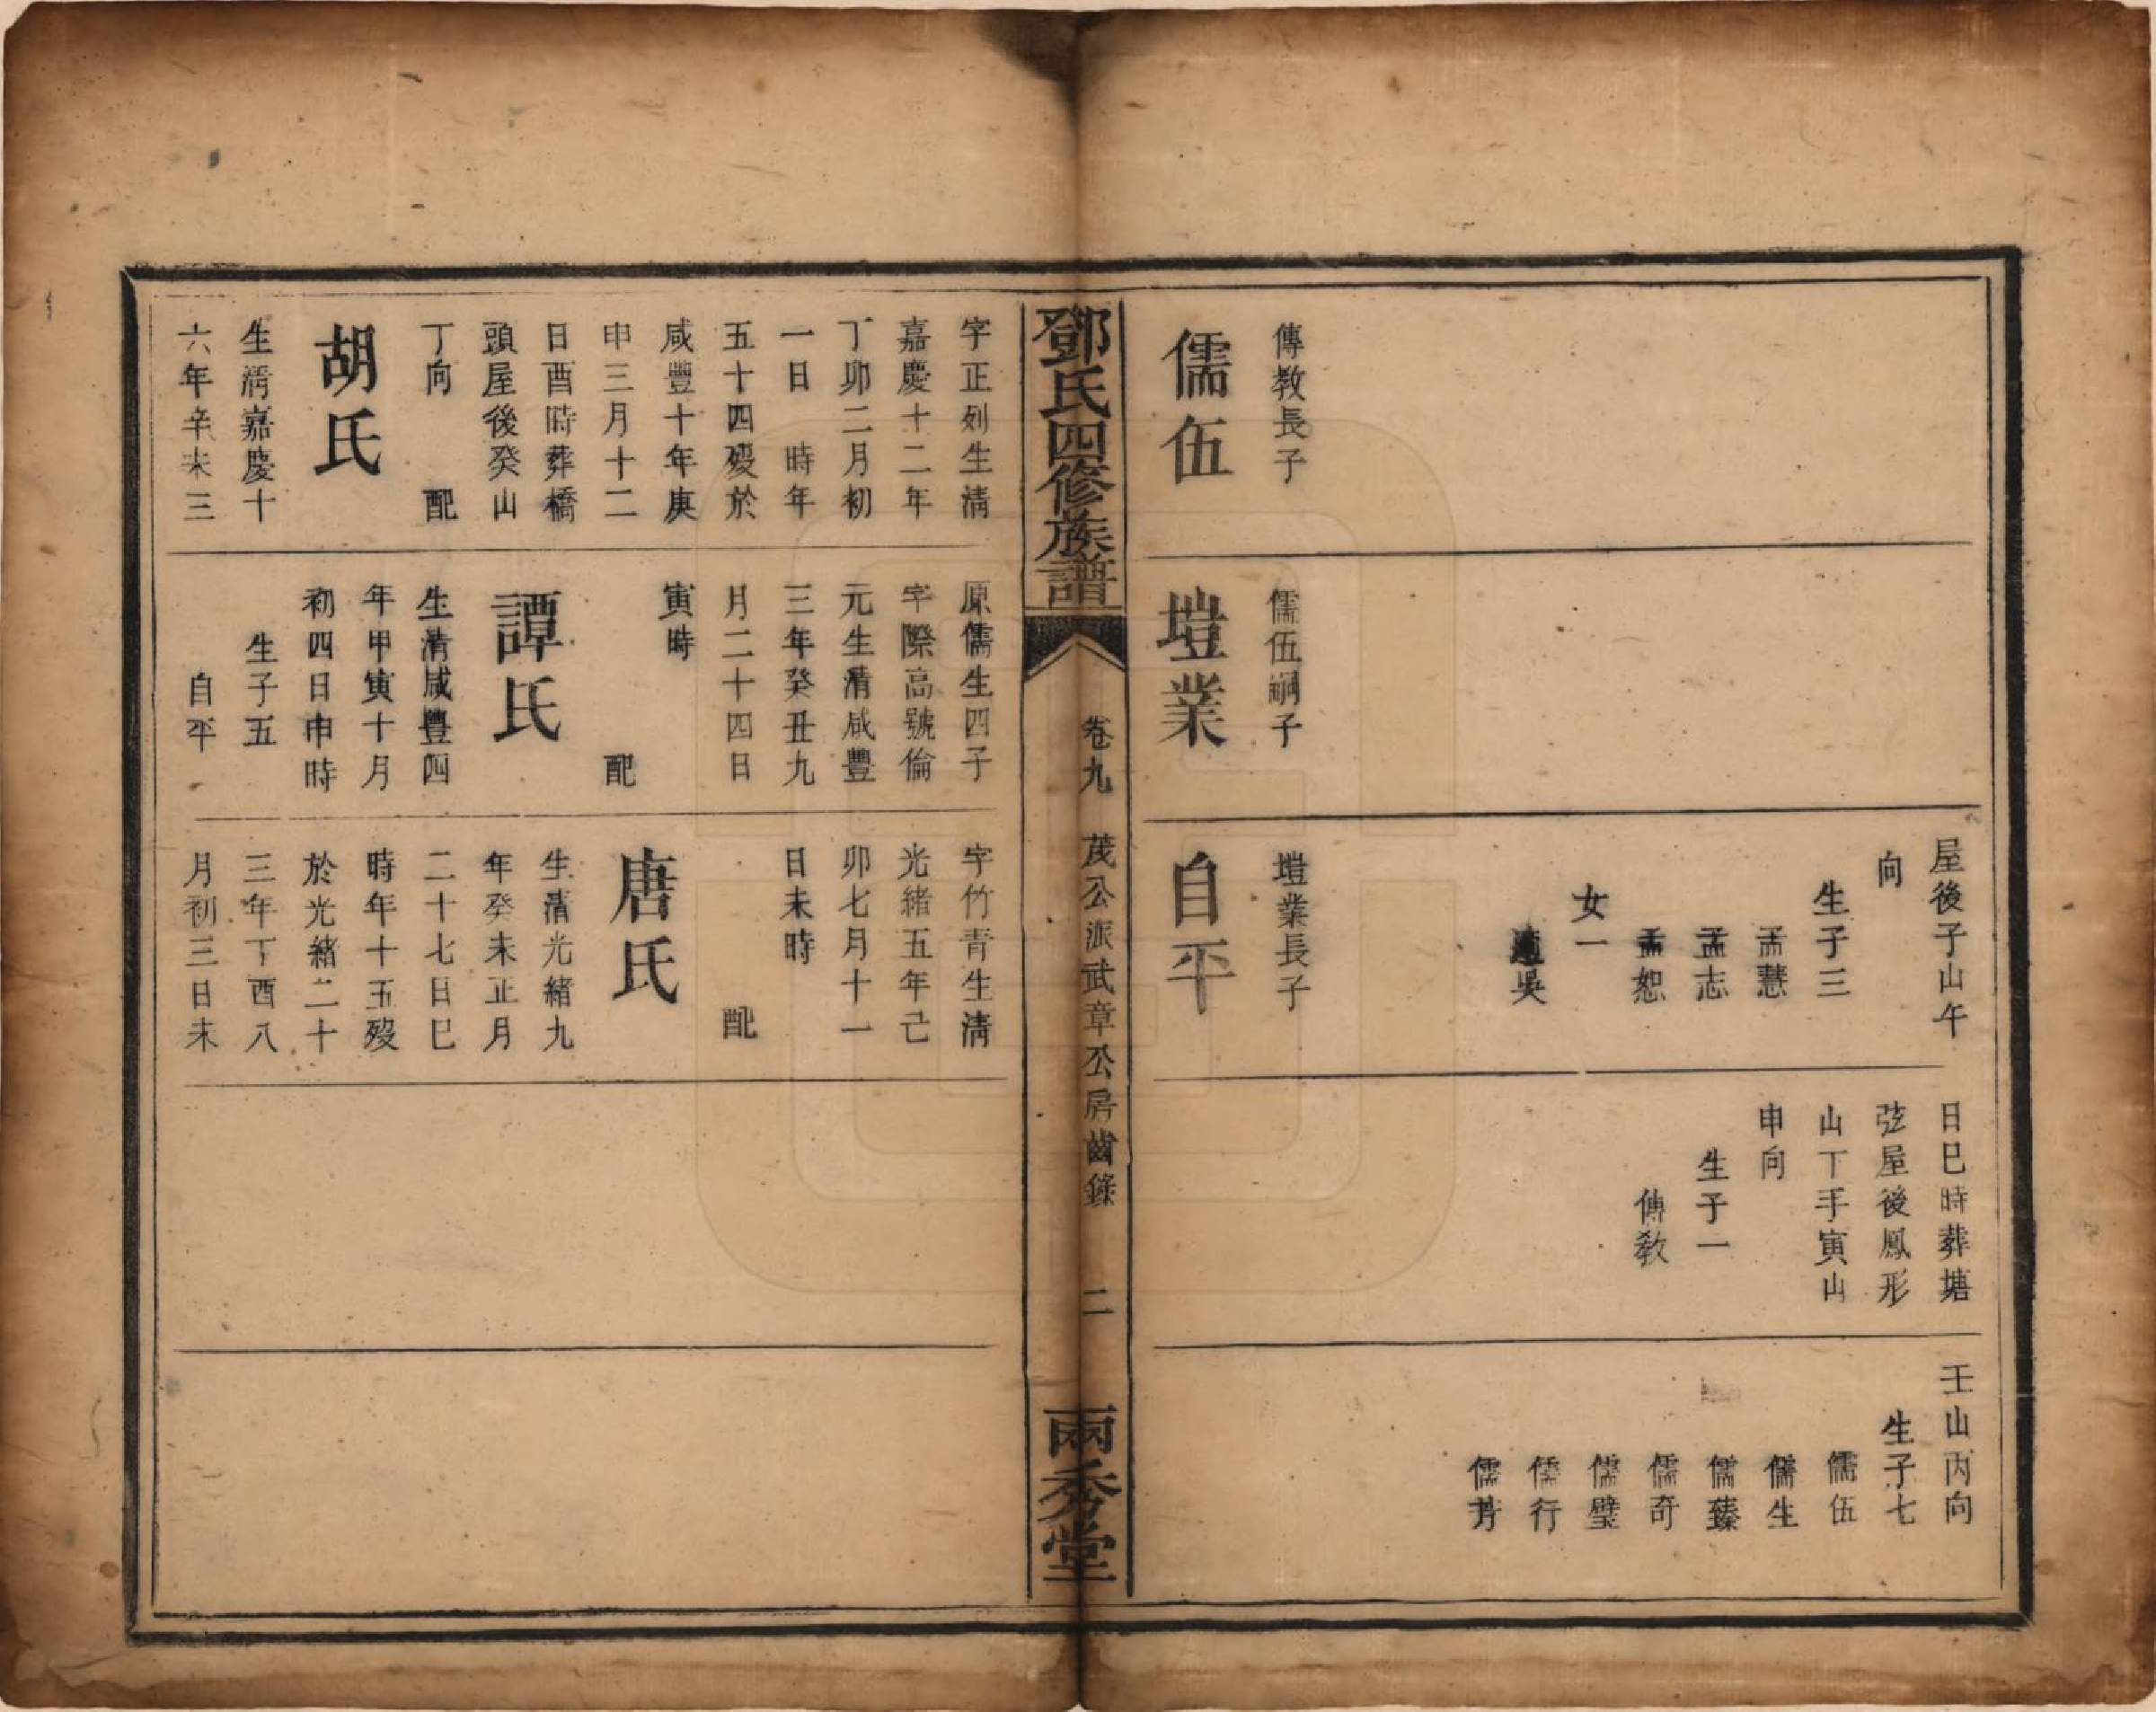 傳教長子
儒伍
儒伍嗣子
塏業
屋後子山午
向
生子三
孟慧
孟志
孟恕
女一
適吳
塏業長子
自平
日巳時葬塘
弦屋後鳳形
山丁手寅山
申向
生子一
傳教
壬山丙向
生子七
儒伍
儒生
儒臻
儒奇
儒璧
儒行
儒芳
鄧氏四修族譜
卷九 茂公派武章公房齒錄 二
兩秀堂
字正列生淸
嘉慶十二年
丁卯二月初
一日 時年
五十四歿於
咸豐十年庚
申三月十二
日酉時葬橋
頭屋後癸山
丁向 配
胡氏
生淸嘉慶十
六年辛未三
原儒生四子
字際高號倫
元生淸咸豐
三年癸丑九
月二十四日
寅時
配
譚氏
生淸咸豐四
年甲寅十月
初四日申時
生子五
自平
字竹靑生淸
光緒五年己
卯七月十一
日未時
配
唐氏
生淸光緒九
年癸未正月
二十七日巳
時年十五歿
於光緒二十
三年丁酉八
月初三日未